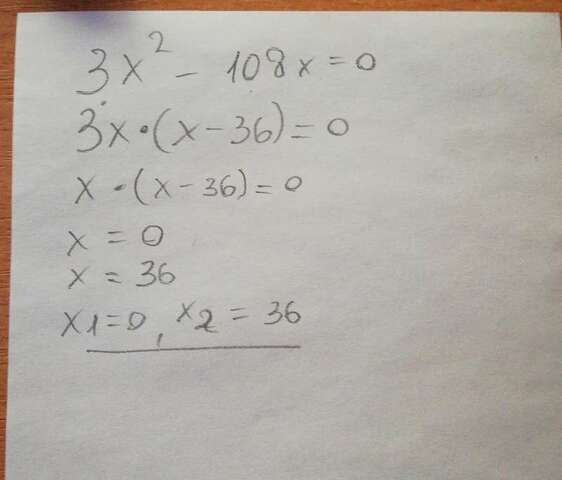 3x² - 108x = 0
3x·(x - 36) = 0
x·(x - 36) = 0
x = 0
x = 36
x1=0, x2 = 36